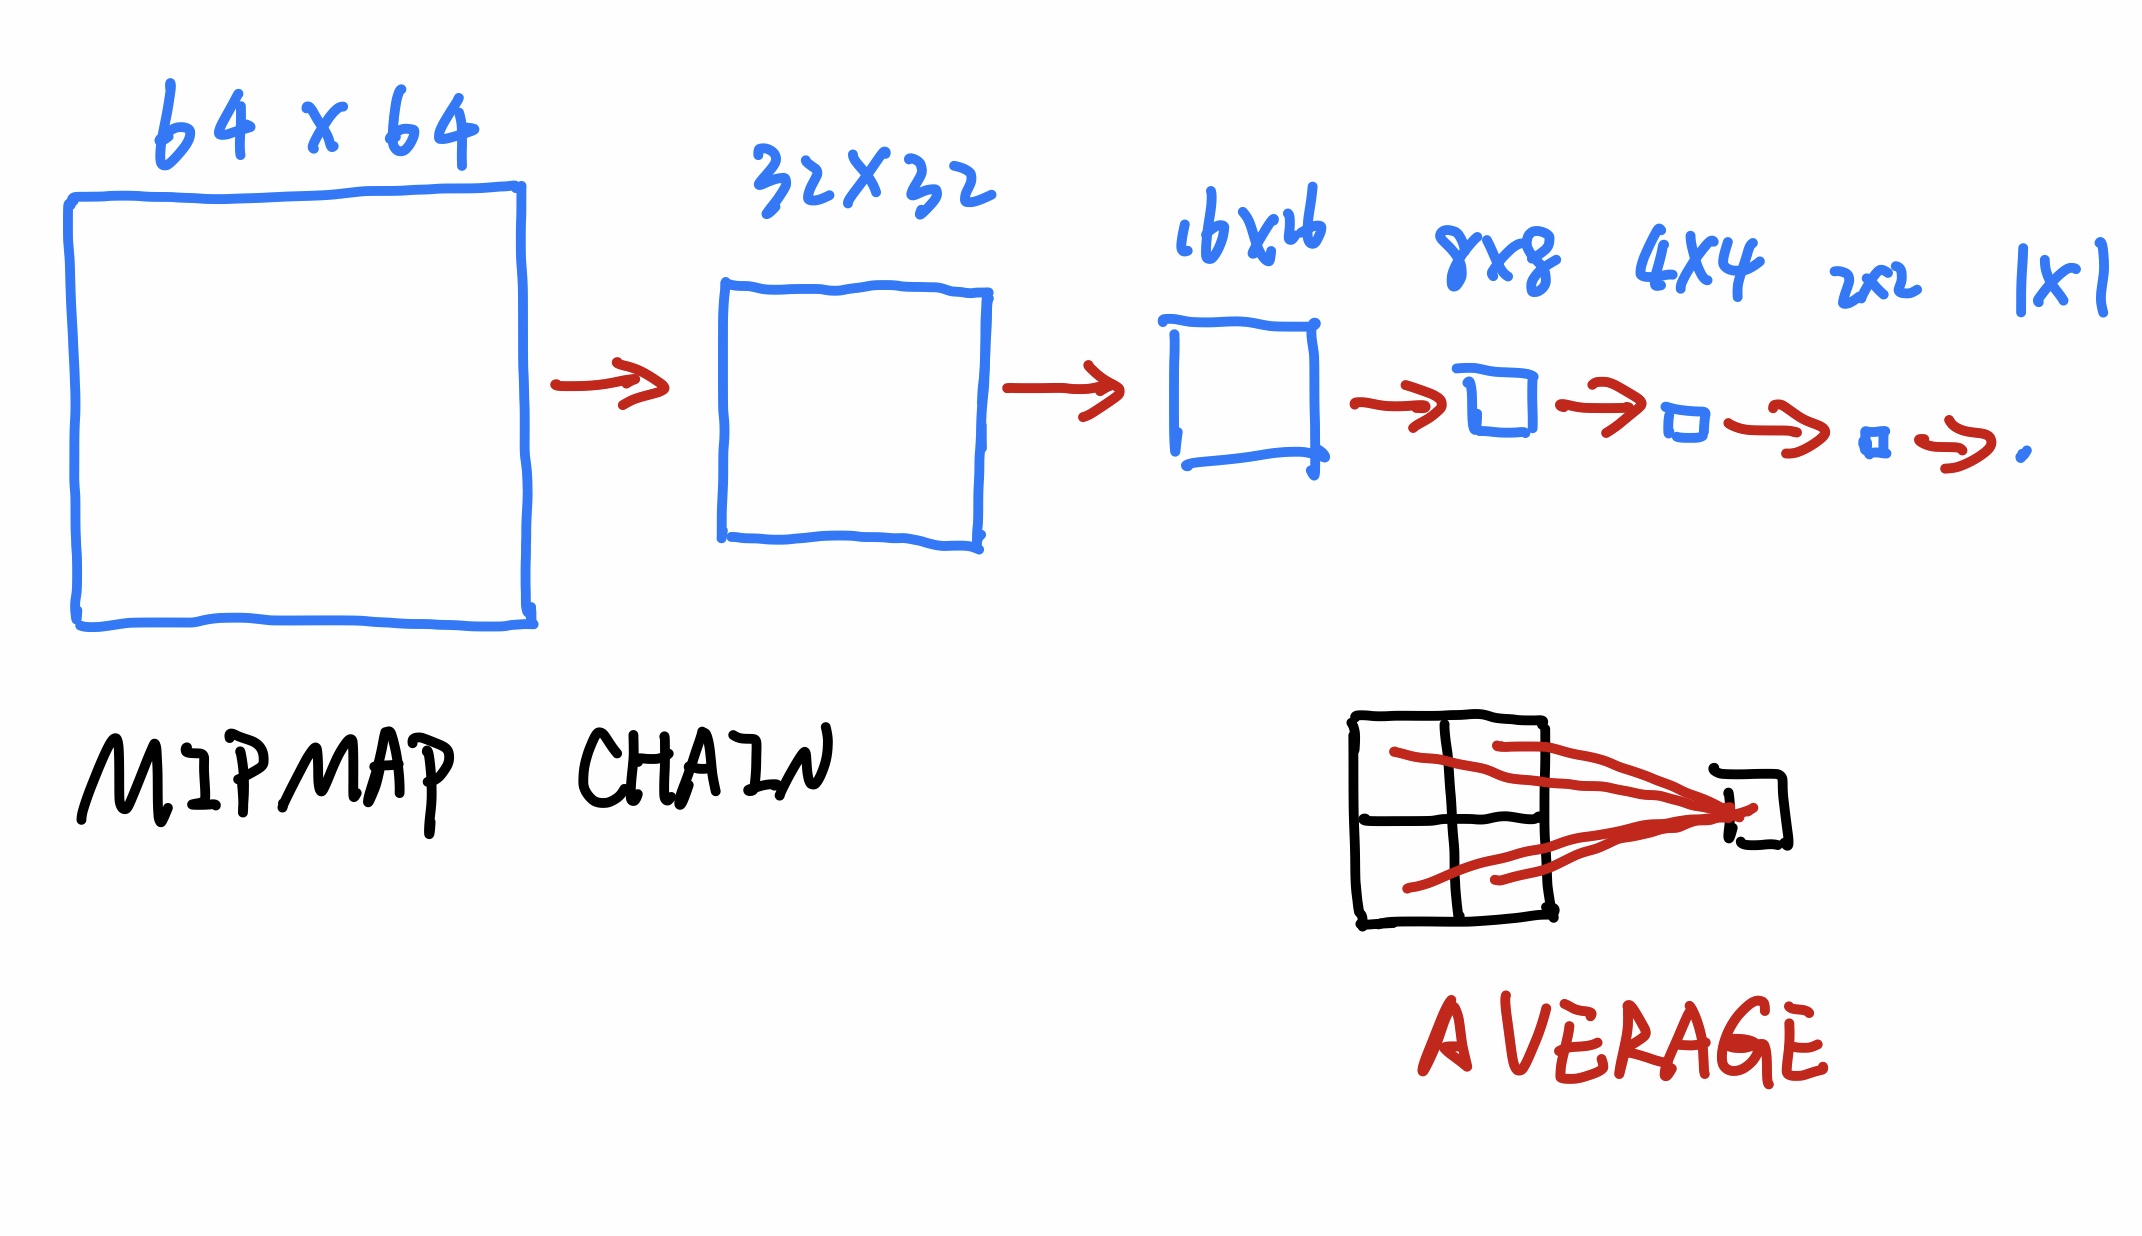 64 x 64
32x32
16x16
8x8
4x4
2x2
1x1
MIPMAP CHAIN
AVERAGE